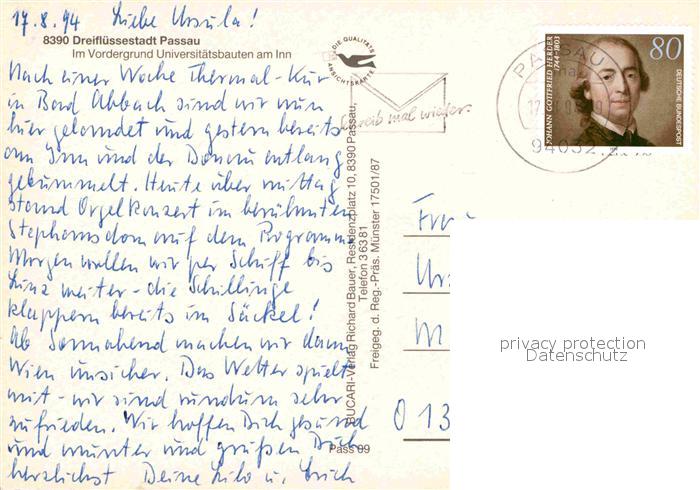 17.8.94 Liebe Ursula!
8390 Dreiflüssestadt Passau
Im Vordergrund Universitätsbauten am Inn
DIE QUALITÄTS
ANSICHTSKARTE
Nach einer Woche Thermal-Kur
in Bad Abbach sind wir nun
hier gelandet und gestern bereits
am Inn und der Donau entlang
gebummelt. Heute über mittag
stand Orgelkonzert im berühmten
Stephansdom auf dem Programm
Morgen wollen wir per Schiff bis
Linz weiter - die Schillinge
klappern bereits im Säckel!
Ab Sonnabend machen wir dann
Wien unsicher. Das Wetter spielt
mit - wir sind rundum sehr
zufrieden. Wir hoffen Dich gesund
und munter und grüßen Dich
herzlichst Deine Lilo u. Erich
BUCARI-Verlag Richard Bauer, Residenzplatz 10, 8390 Passau,
Telefon 3 63 81
Freigeg. d. Reg.-Präs. Münster 17501/87
Pass 09
Schreib mal wieder.
PASSAU
94032
JOHANN GOTTFRIED HERDER
1744-1803
80
DEUTSCHE BUNDESPOST
Frau
Ur
M
O 13
privacy protection
Datenschutz